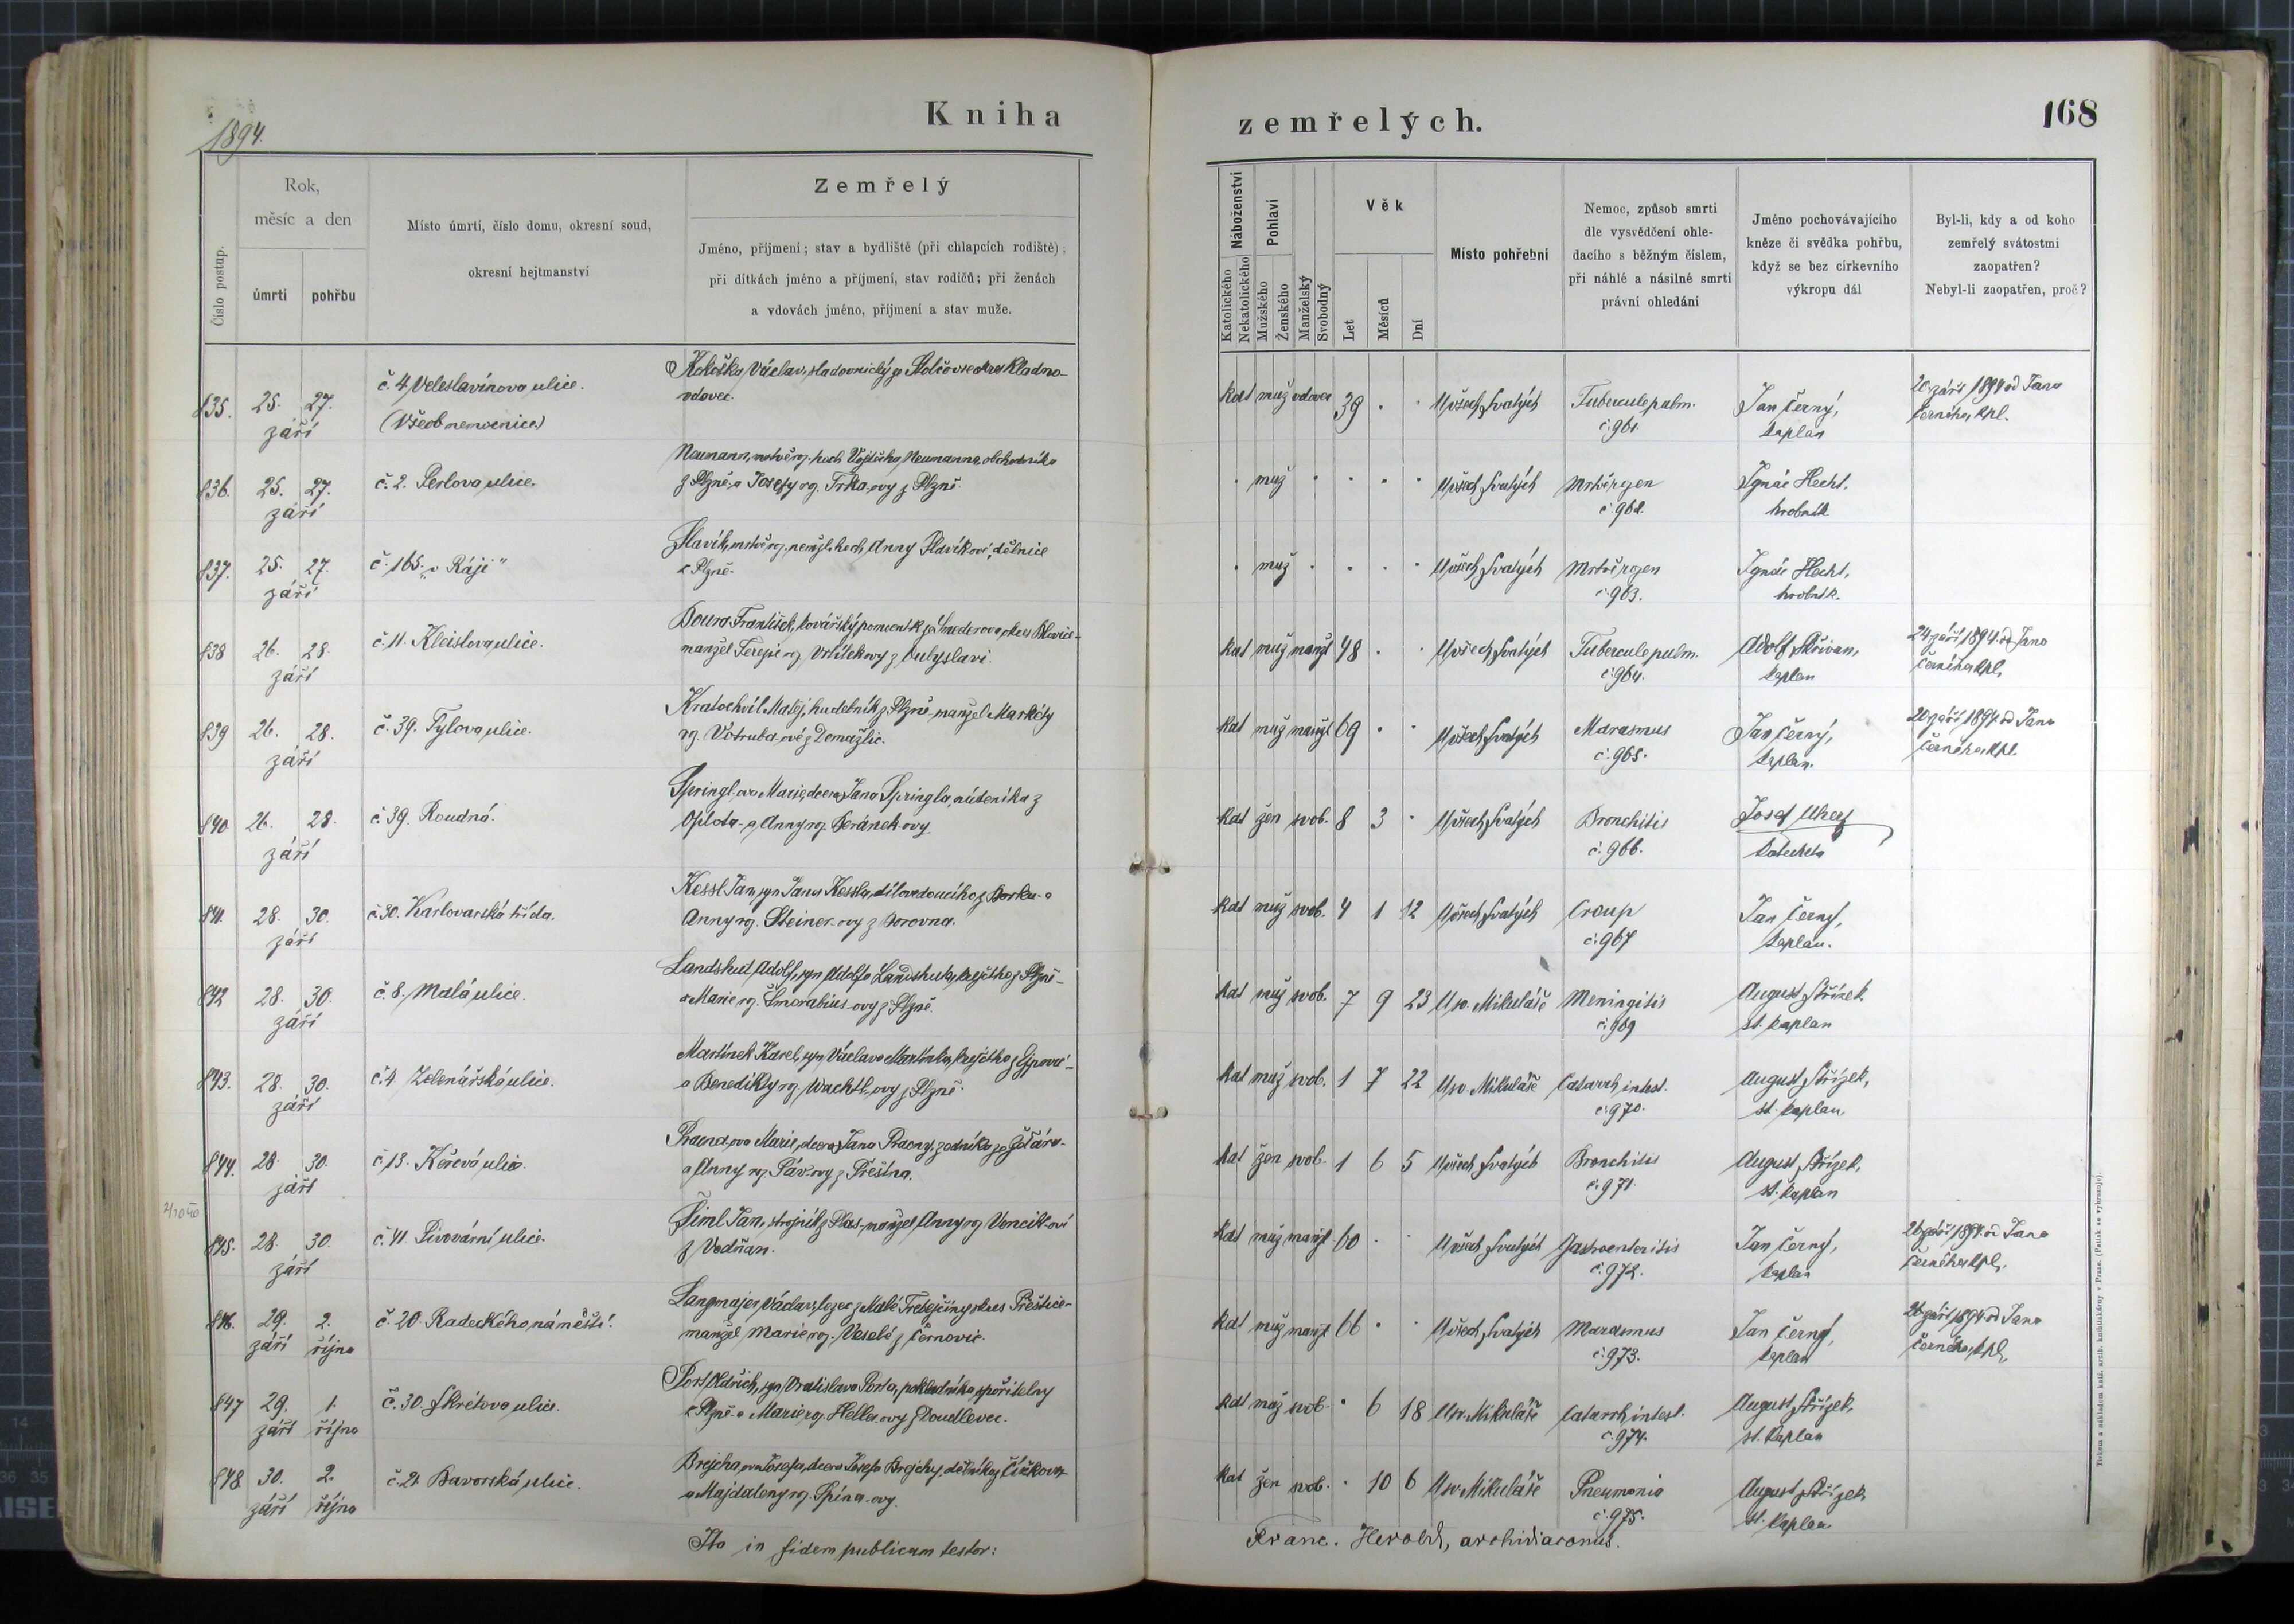 Kniha
zemřelých.
168
1894.
Číslo postup.
Rok,
měsíc a den
úmrtí
pohřbu
Místo úmrtí, číslo domu, okresní soud,
okresní hejtmanství
Zemřelý
Jméno, příjmení; stav a bydliště (při chlapcích rodiště);
při dítkách jméno a příjmení, stav rodičů; při ženách
a vdovách jméno, příjmení a stav muže.
Náboženství
Katolického
Nekatolického
Pohlaví
Mužského
Ženského
Manželský
Svobodný
Věk
Let
Měsíců
Dní
Místo pohřební
Nemoc, způsob smrti
dle vysvědčení ohle-
dacího s běžným číslem,
při náhlé a násilné smrti
právní ohledání
Jméno pochovávajícího
kněze či svědka pohřbu,
když se bez církevního
výkropu dál
Byl-li, kdy a od koho
zemřelý svátostmi
zaopatřen?
Nebyl-li zaopatřen, proč?
835. 25. 27. č. 4 Veleslavínova ulice. Václav, sladovnický Kladno kat muž vdovec 39 U všech Svatých Tubercule pulm. Jan Černý, 20. září 1894 od Jana
září (Všeob. nemocnice) vdovec. č. 961. kaplan Černého, kpl.
836. 25. 27. č. 2. Perlova ulice. Neumann, mrtvě roz. hoch Vojtěcha Neumanna, obchodníka muž U všech Svatých Mrtvě rozen Ignác Hecht,
září z Plzně a Josefy roz. Trka-ovy z Plzně. č. 962. hrobník
837. 25. 27. č. 165. „v Ráji" Slavík, mrtvě roz. nemžl. hoch Anny Slavíkovi, dělnice muž U všech Svatých Mrtvě rozen Ignác Hecht,
září z Plzně. č. 963. hrobník.
838 26. 28. č. 11. Kleistova ulice. Boura František, kovářský pomocník ze Smederova, okres Blovice- kat muž manžel 48 U všech Svatých Tubercule pulm. Adolf Skřivan, 24. září 1894 od Jana
září manžel Terezie roz. z č. 964. kaplan Černého, kpl.
839 26. 28. č. 39. Tylova ulice. Kratochvíl Matěj, z Plzně, manžel Markéty kat muž manžel 69 U všech Svatých Marasmus Jan Černý, 20. září 1894 od Jana
září roz. Votruba-ové z Domažlic. č. 965. kaplan. Černého, kpl.
840 26. 28. č. 39. Roudná. Springl-ova Marie, dcera Jana Springla, z kat žen svob. 8 3 U všech Svatých Bronchitis Josef
září a Anny roz. Beránek-ovy. č. 966. katecheta
841. 28. 30. č. 30. Karlovarská třída. Kessl Jan, syn Jana Kessla, dílovedoucího z Borku a kat muž svob. 4 1 12 U všech Svatých Croup Jan Černý,
září Anny roz. Steiner-ovy z č. 967 kaplan.
842 28. 30. č. 8. Malá ulice. Landshut Adolf, syn Adolfa Landshuta, krejčího z Plzně- kat muž svob. 7 9 23 U sv. Mikuláše Meningitis August Střízek
září a Marie roz. z Plzně. č. 969 st. kaplan
843. 28. 30. č. 4 Zelenářská ulice. Martínek Karel, syn Václava Martínka, krejčího z kat muž svob. 1 7 22 U sv. Mikuláše Catarrh. intest. August Střízek,
září a Benedikty roz. Wachtl-ovy z Plzně. č. 970. st. kaplan
844. 28. 30. č. 13. ulice. Marie, dcera Jana zedníka ze Žďára- kat žen svob. 1 6 5 U všech Svatých Bronchitis August Střízek,
září a Anny roz. z č. 971. st. kaplan
845. 28. 30. č. 41. Pivovární ulice. Šiml Jan, strojník z Plas, manžel Anny roz. kat muž manžl. 60 U všech Svatých Gastroenteritis Jan Černý, 26. září 1894 od Jana
září z Vodňan. č. 972. kaplan Černého, kpl.
846. 29. 2. č. 20. Radeckého náměstí. Langmajer Václav, z Malé okres Přeštice- kat muž manžl 66 U všech Svatých Marasmus Jan Černý, 26. září 1894 od Jana
září října manžel Marie roz. Veselé z Černovic. č. 973. kaplan Černého, kpl.
847 29. 1. č. 30. Skrétova ulice. Port Oldřich, syn Vratislava Porta, pokladníka spořitelny kat muž svob. 6 18 U sv. Mikuláše Catarrh. intest. August Střízek,
září října z Plzně a Marie roz. Heller-ovy z Doudlevec. č. 974. st. kaplan
848 30. 2. č. 21 Bavorská ulice. Brejcha-ova Josefa, dcera Josefa Brejchy, dělníka z kat žen svob. 10 6 U sv. Mikuláše Pneumonia August Střízek,
září října a Majdaleny roz. Špína-ovy. č. 975. st. kaplan
Ita in fidem publicam testor:
Franc. Herold, archidiaconus.